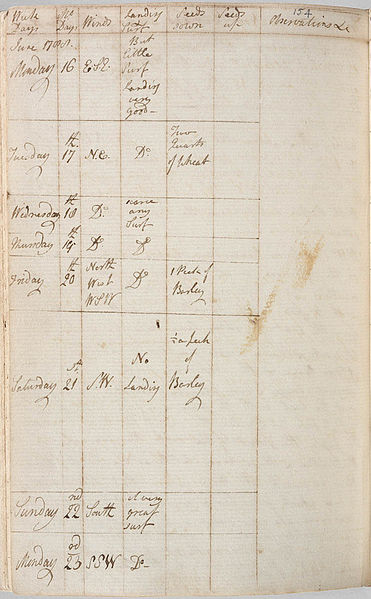 Week Days No Days Winds Landing Surf Seeds sown Seeds up 154 Observations &c
June 1788.
Monday 16 E.S.E. But little Surf landing very good—
Tuesday 17th N.E. Do Two Quarts of Wheat
Wednesday 18th Do scarce any Surf
Thursday 19th Do Do
Friday 20th North West WSW Do 1 Peck of Barley
Saturday 21st S.W. No Landing ½ a peck of Barley
Sunday 22nd South a very great surf
Monday 23rd SSW Do—